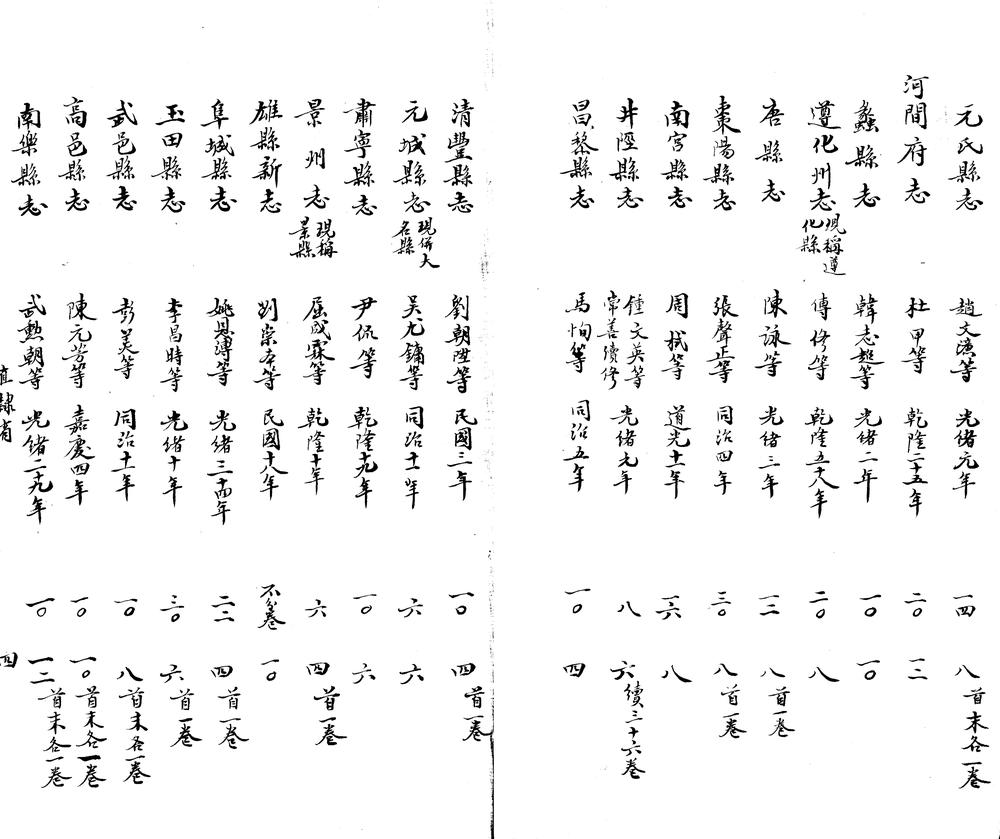 元氏縣志 趙文濂等 光緒元年 一四 八 首末各一卷
河間府志 杜甲等 乾隆二十五年 二〇 一二
蠡縣志 韓志超等 光緒二年 一〇 一〇
遵化州志 現稱遵化縣 傅修等 乾隆五十八年 二〇 八
唐縣志 陳詠等 光緒三年 一二 八 首一卷
棗陽縣志 張聲正等 同治四年 三〇 八 首一卷
南宮縣志 周栻等 道光十一年 一六 八
井陘縣志 鍾文英等 常善續修 光緒元年 八 六 續三十六卷
昌黎縣志 馬恂等 同治五年 一〇 四
清豐縣志 劉朝陞等 民國三年 一〇 四 首一卷
元城縣志 現併大名縣 吳大鏞等 同治十一年 六 六
肅寧縣志 尹侃等 乾隆十九年 一〇 六
景州志 現稱景縣 屈成霖等 乾隆十年 六 四 首一卷
雄縣新志 劉崇本等 民國十八年 不分卷 一〇
阜城縣志 姚恩溥等 光緒三十四年 二二 四 首一卷
玉田縣志 李昌時等 光緒十年 三〇 六 首一卷
武邑縣志 彭美等 同治十一年 一〇 八 首末各一卷
高邑縣志 陳元芳等 嘉慶四年 一〇 一〇 首末各一卷
南樂縣志 武勲朝等 光緒二十九年 一〇 一二 首末各一卷
直隸省 四